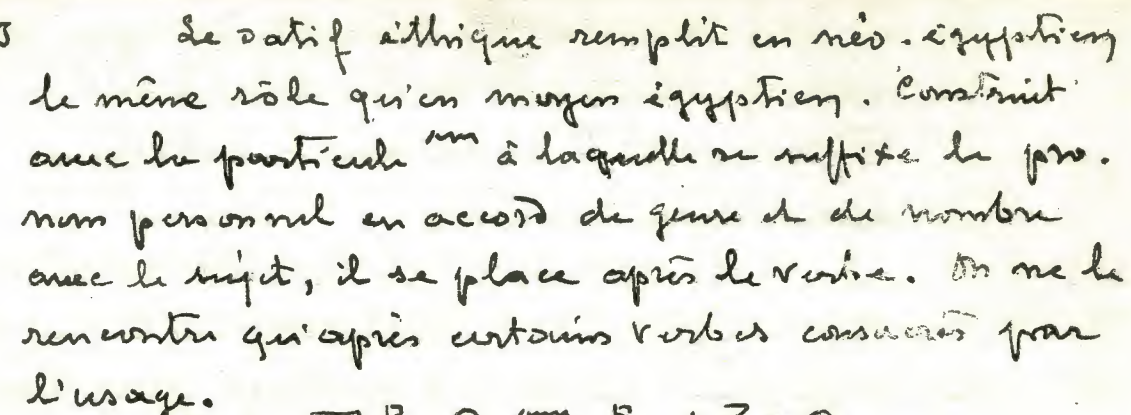 Le datif éthique remplit en néo-égyptien
le même rôle qu'en moyen égyptien. Construit
avec la particule 𓈖 à laquelle se suffixe le pro-
nom personnel en accord de genre et de nombre
avec le sujet, il se place après le verbe. On ne le
rencontre qu'après certains verbes consacrés par
l'usage.